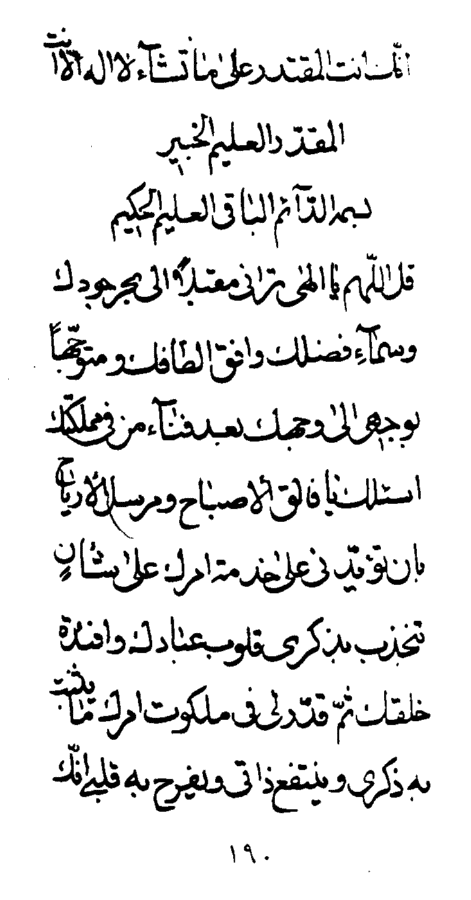 انّك انت المقتدر علی ما تشآء لا اله الّا انت
المقتدر العلیم الخبیر
بسمه الدّآئم الباقی العلیم الحکیم
قل اللّهم یا الهی ترانی مقبلاً الی بحر جودك
وسمآءِ فضلك وافق الطافك ومتوجّهاً
بوجهی الی وجهك بعد فنآء من فی مملکتك
اسئلك یا فالق الاصباح ومرسل الاریاح
بان تؤیّدنی علی خدمة امرك علی شأنٍ
تنجذب بذکری قلوب عبادك وافئدة
خلقك ثمّ قدّر لی فی ملکوت امرك ما یثبت
به ذکری وینتفع ذاتی ویفرح به قلبی انّك
۱۹۰